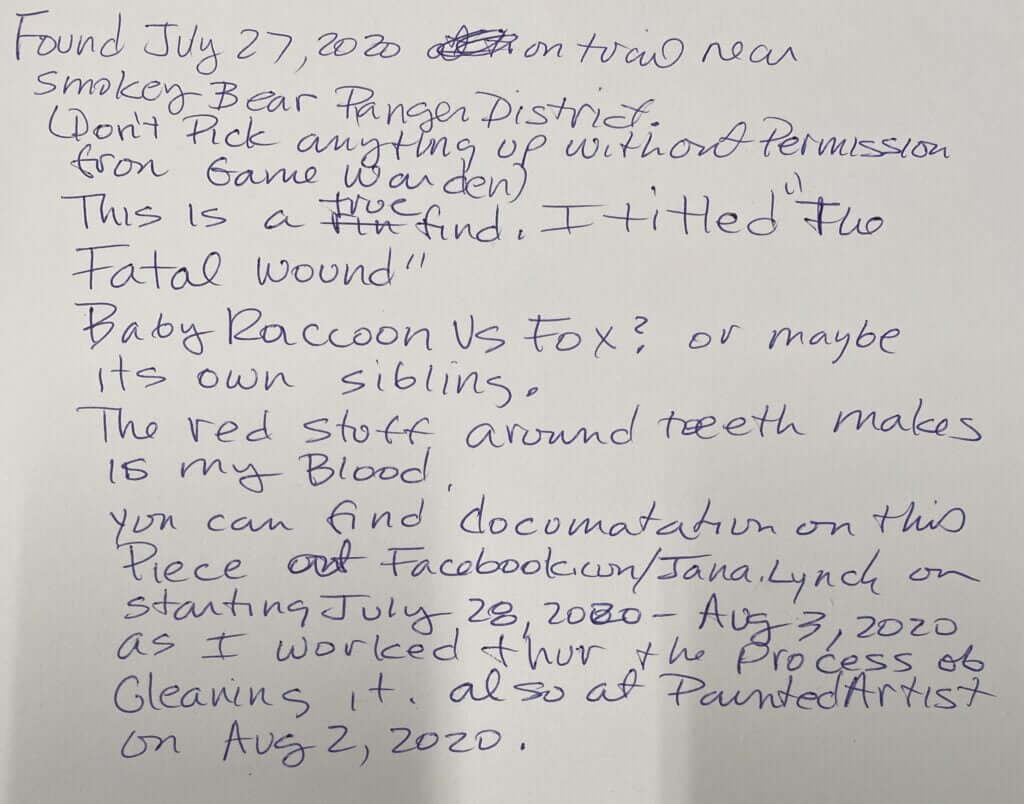 Found July 27, 2020 on trail near
Smokey Bear Ranger District.
(Don't Pick anyting up without Permission
from Game Warden)
This is a true find. I titled "The
Fatal wound"
Baby Raccoon Vs Fox? or maybe
its own sibling.
The red stuff around teeth makes
is my Blood.
you can find documatation on this
Piece out Facebook.com/Jana.Lynch on
starting July 28, 2020 - Aug 3, 2020
as I worked thur the Process of
Cleaning it. also at PauntedArtist
on Aug 2, 2020.